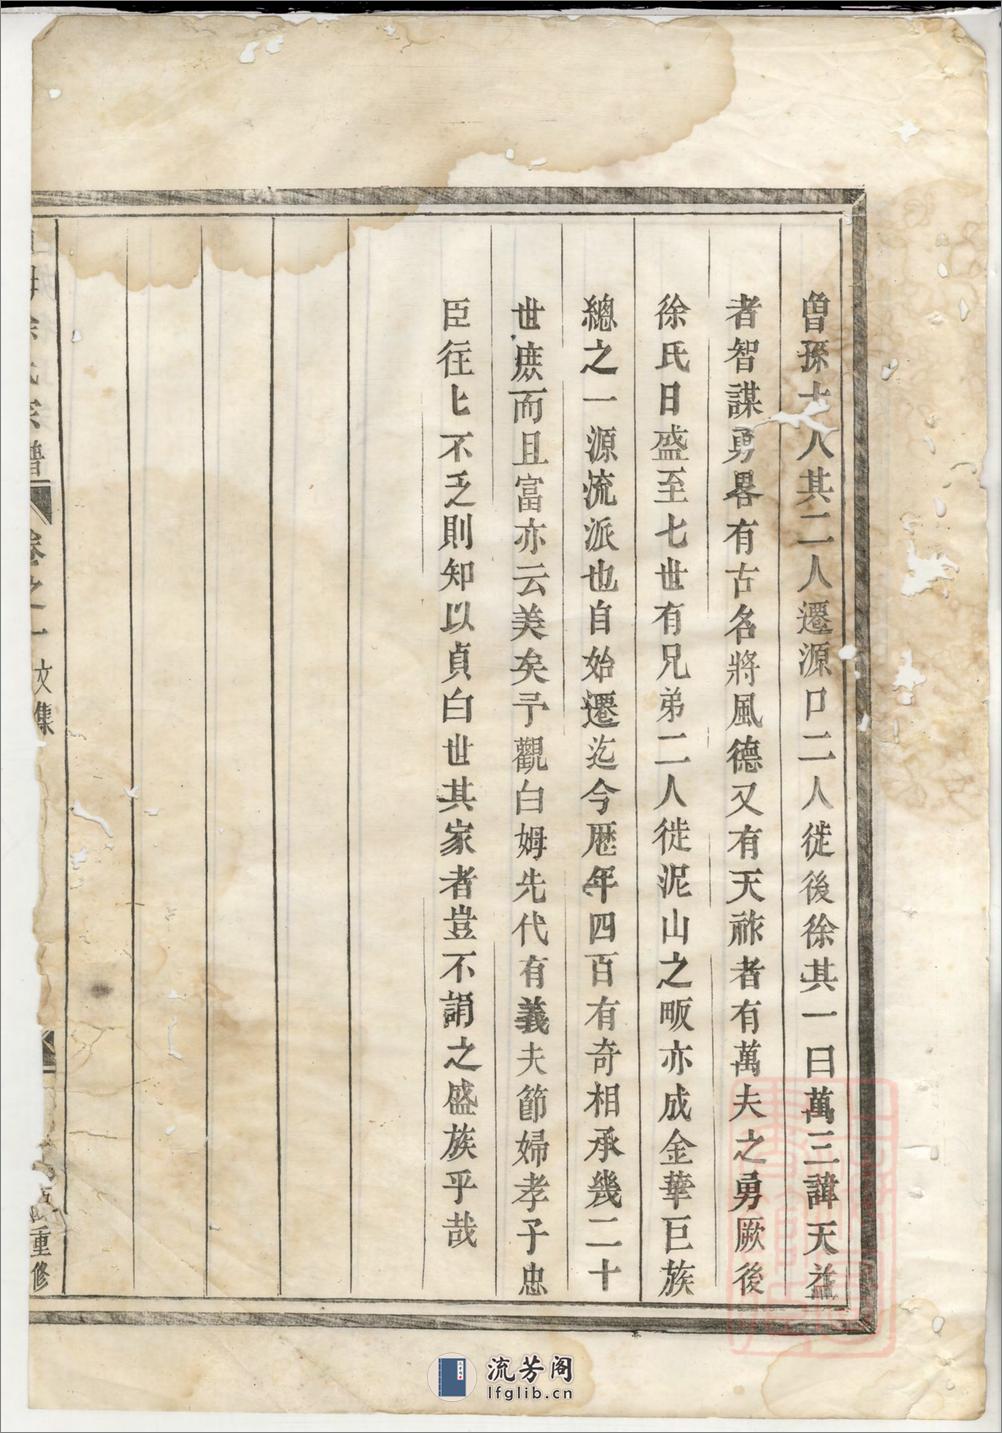 曽孫七人其二人遷源口二人徙後徐其一曰萬三諱天益
者智謀勇畧有古名將風德又有天祚者有萬夫之勇厥後
徐氏日盛至七世有兄弟二人徙泥山之畈亦成金華巨族
總之一源流派也自始遷迄今厯年四百有奇相承幾二十
世庶而且富亦云美矣予觀白姆先代有義夫節婦孝子忠
臣往匕不乏則知以貞白世其家者豈不誚之盛族乎哉
徐氏宗譜 卷之一 文集
重修
流芳阁
lfglib.cn